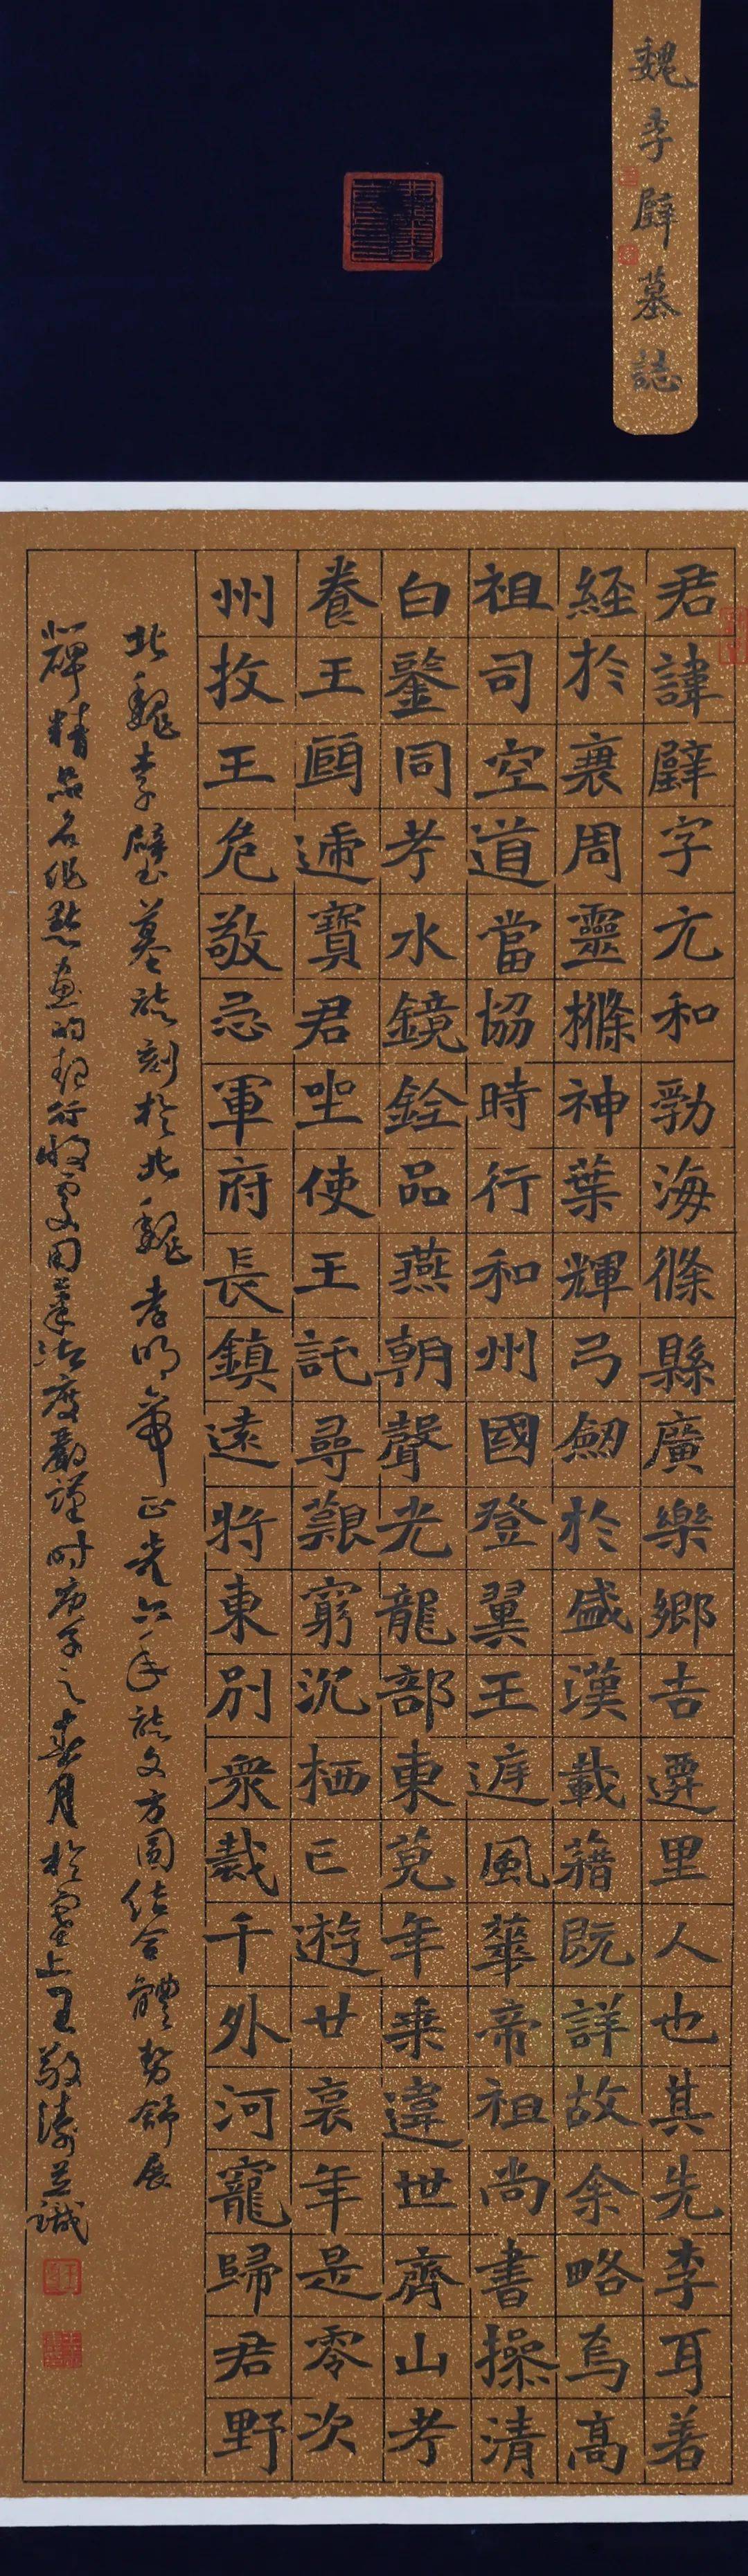 魏李壁墓誌
君諱壁字元和勃海條縣廣樂鄉吉遷里人也其先李耳著
經於衰周靈樤神葉輝弓劒於盛漢載籍既詳故余略焉高
祖司空道當協時行和州國登翼王庭風華帝祖尚書操清
白鑒同考水鏡銓品燕朝聲光龍部東莧年乘違世齊山考
養王 遞寶君坐使王託尋艱窮沉栖已遊廿哀年是零次
州牧王危敬忌軍府長鎮遠將東別衆裁千外河寵歸君野
北魏李璧墓誌刻於北魏孝明帝正光六年誌文方圓結合體勢舒展
碑精品名作點畫的起行收更用筆法度嚴謹时庚子之春月於 上王敬濤並識